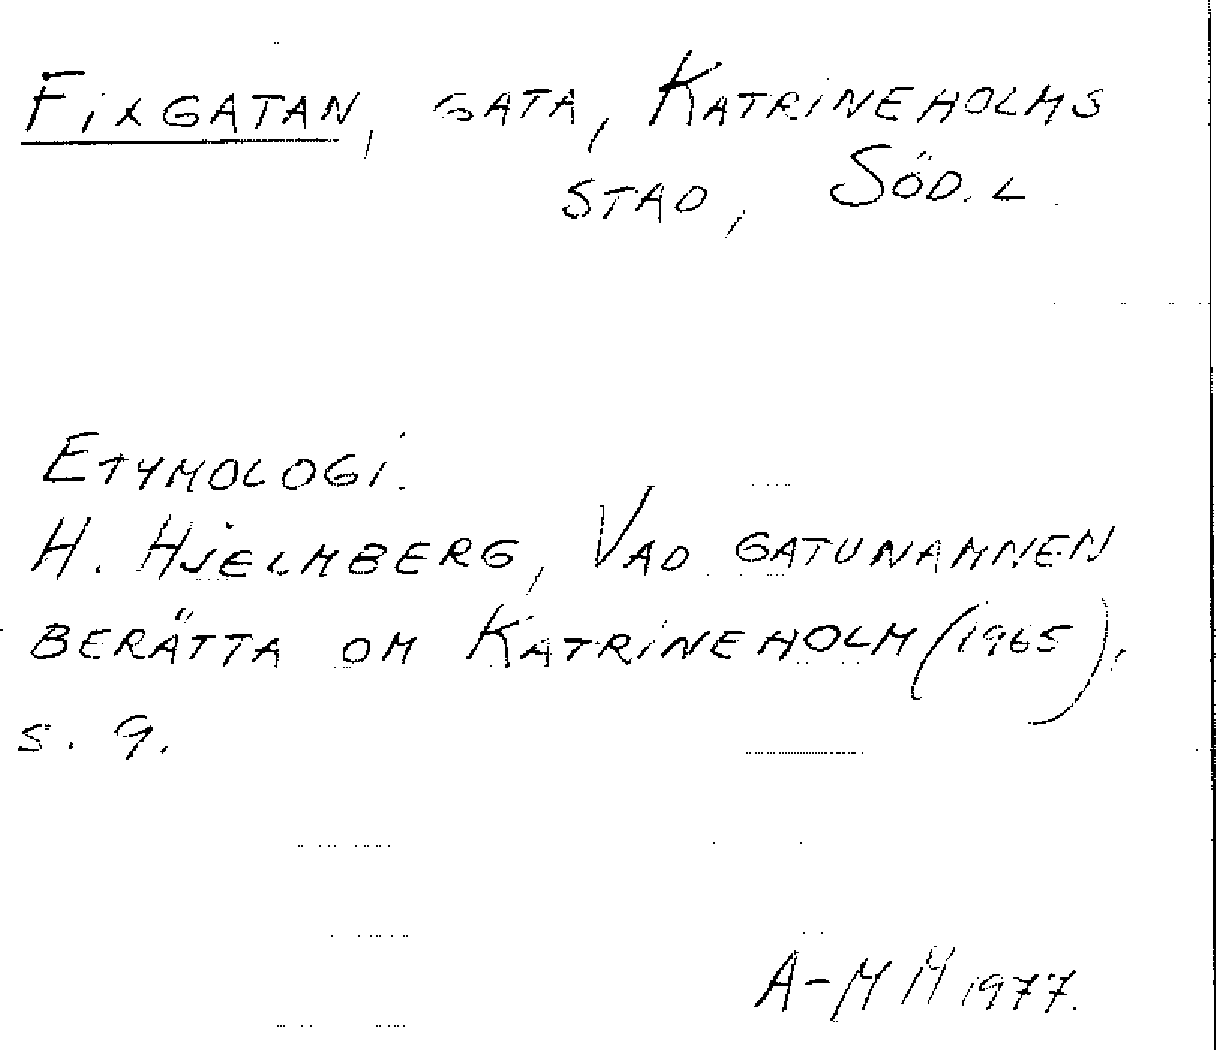 FIXGATAN, GATA, KATRINEHOLMS
STAD, SÖD.L.
ETYMOLOGI.
H. HJELMBERG, VAD GATUNAMNEN
BERÄTTA OM KATRINEHOLM (1965),
S. 9.
A-M M 1977.